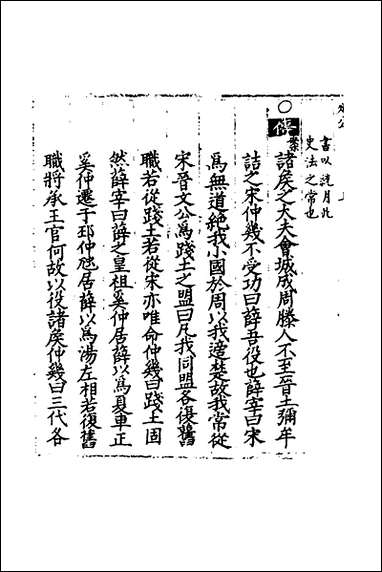 書以月此
史法之常也
○傳案諸侯之大夫會城成周滕人不至晉士彌牟
詰之宋仲幾不受功曰薛吾役也薛宰曰宋
爲無道絶我小國於周以我適楚故我常從
宋晉文公爲踐土之盟曰凡我同盟各復舊
職若從踐土若從宋亦唯命仲幾曰踐土固
然薛宰曰薛之皇祖奚仲居薛以爲夏車正
奚仲遷于邳仲虺居薛以爲湯左相若復舊
職將承王官何故以役諸侯仲幾曰三代各